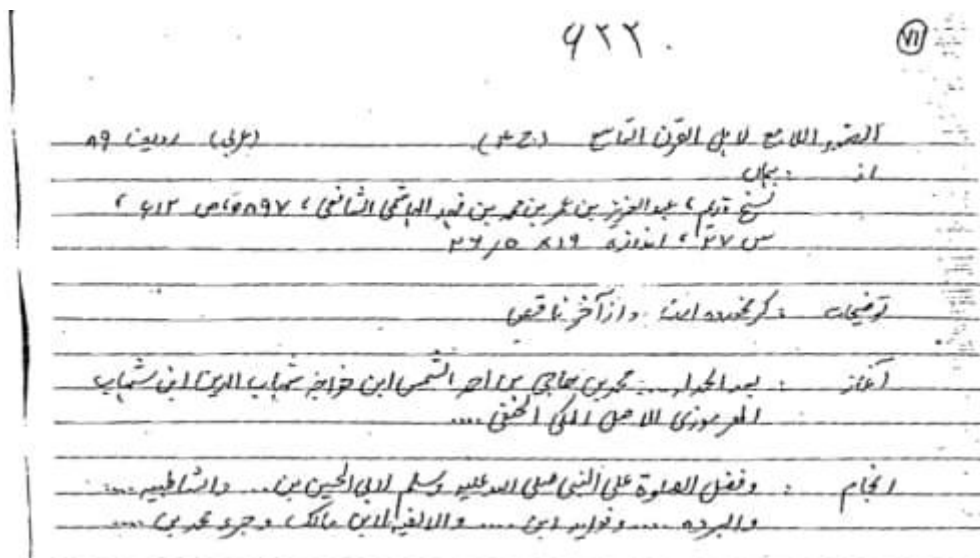 ۶۲۲.
۷۱
الضوء اللامع لاهل القرن التاسع (ج ۴) (عربی) ردیف ۸۹
از : همان
نسخ قدیم، عبدالعزیز بن عمر بن محمد بن فهد الهاشمی الشافعی، ۸۹۷ه، ص ۶۱۲،
س ۲۷، اندازه ۱۹ × ۲۶/۵
توضیحات : کرمخورده است و از آخر ناقص
آغاز : بعد الحمد .... محمد بن حاجی بن احمد الشمس ابن خواجه شهاب الدین ابن شهاب
الاصل المکی الحنفی ....
انجام : و فضل الصلوة علی النبی صلی الله علیه وسلم لابی الحسین بن .... والشاطبیه ....
والبرده .... و فواید ابن .... والالفیه لابن مالک و جزء محمد بن ....